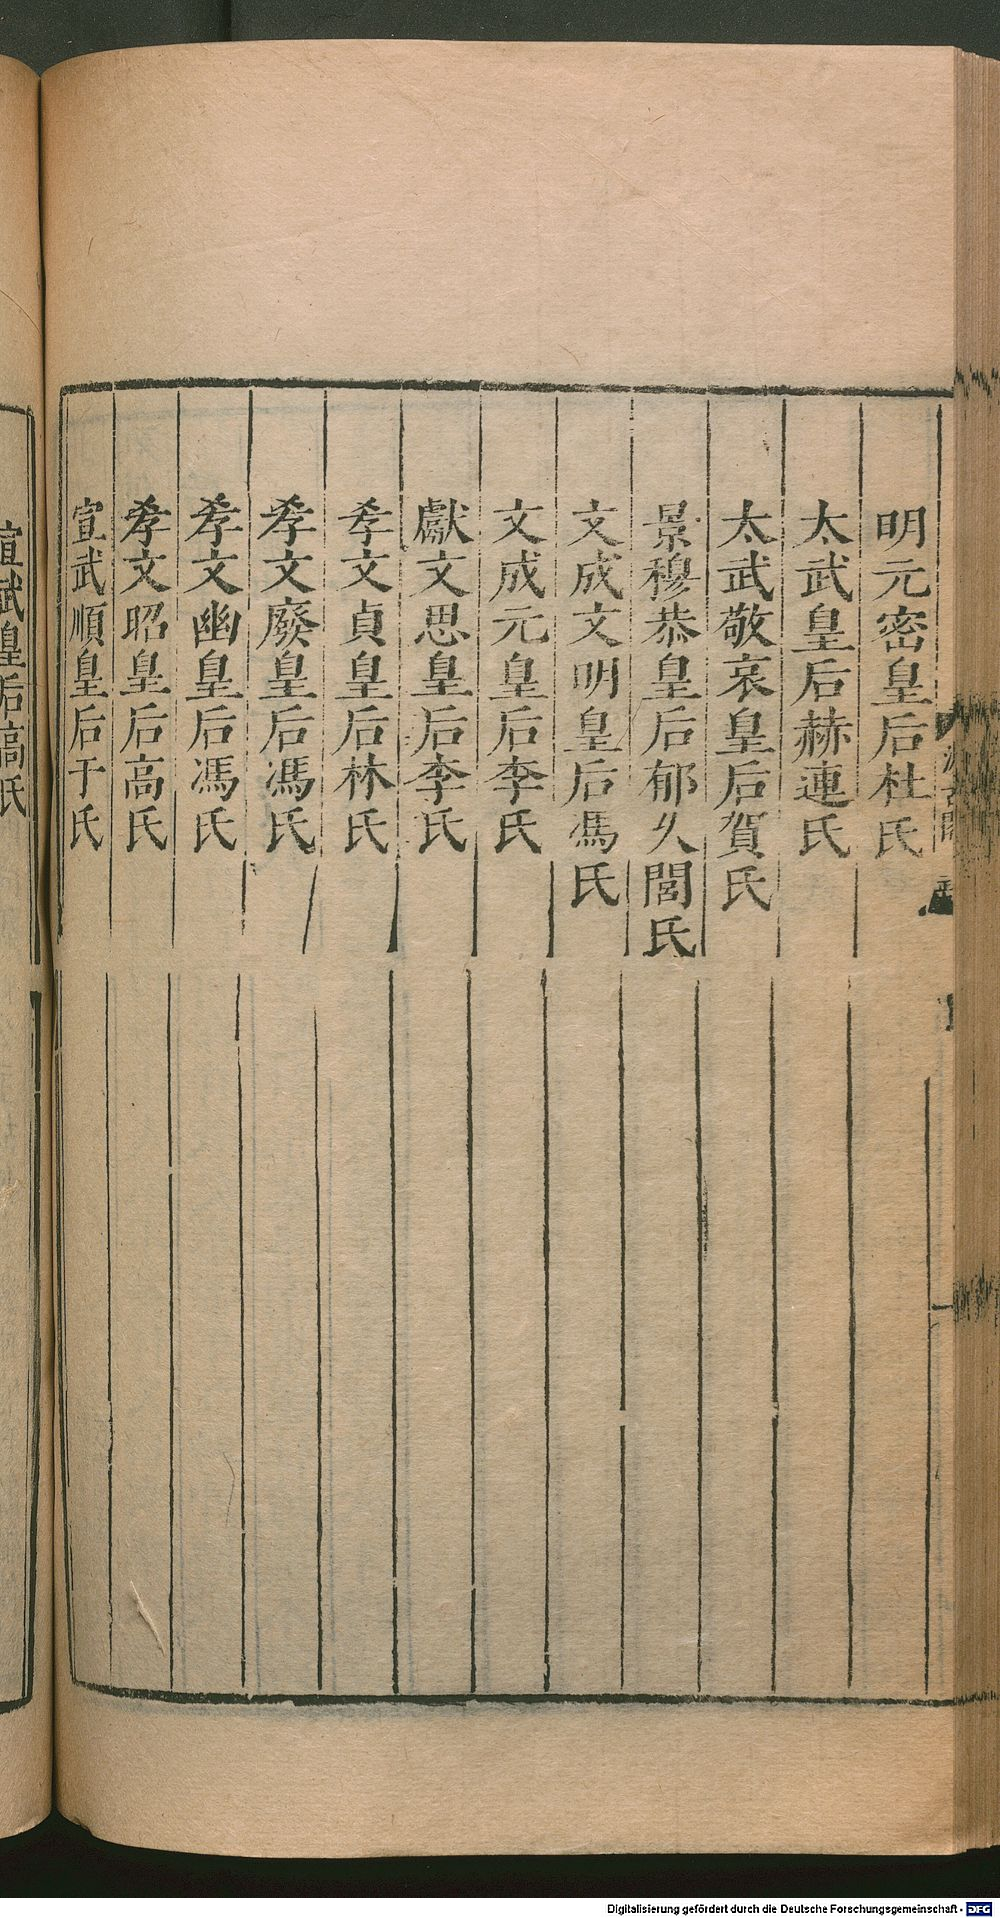 明元密皇后杜氏
太武皇后赫連氏
太武敬哀皇后賀氏
景穆恭皇后郁久閭氏
文成文明皇后馮氏
文成元皇后李氏
獻文思皇后李氏
孝文貞皇后林氏
孝文廢皇后馮氏
孝文幽皇后馮氏
孝文昭皇后高氏
宣武順皇后于氏
宣武皇后高氏
Digitalisierung gefördert durch die Deutsche Forschungsgemeinschaft - DFG